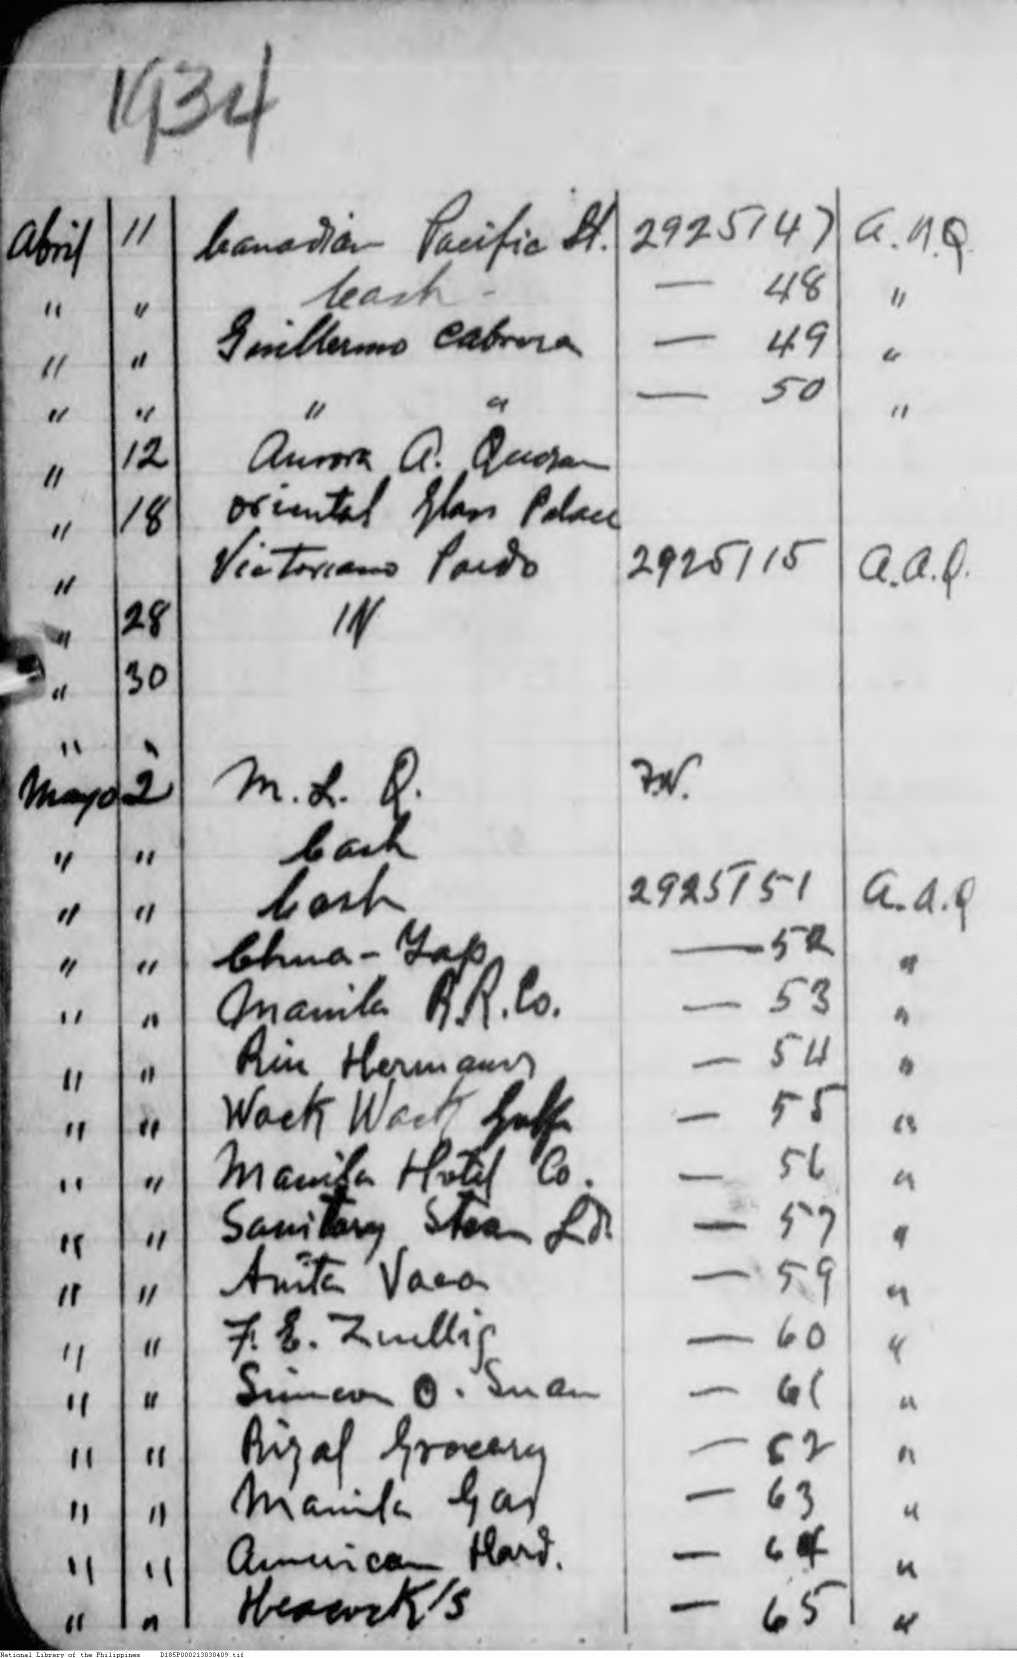 1934
Abril 11 Canadian Pacific St. 2925147 A.A.Q.
" " Cash - — 48 "
" " Guillermo Cabrera — 49 "
" " " " — 50 "
" 12 Aurora A. Quezon
" 18 Oriental Glass Palace
" Victoriano Pardo 2925115 A.A.Q.
" 28 IN
" 30
" "
Mayo 2 M. L. Q.
" " Cash
" " Cash 2925151 A.A.Q
" " Chua - Yap — 52 "
" " Manila R.R. Co. — 53 "
" " Riu Hermanos — 54 "
" " Wack Wack Golf — 55 "
" " Manila Hotel Co. — 56 "
" " Sanitary Steam Ld. — 57 "
" " Anita Vaca — 59 "
" " F. E. Zuellig — 60 "
" " Simeon O. — 61 "
" " Rizal Grocery — 62 "
" " Manila Gas — 63 "
" " American Hard. — 64 "
" " Heacock's — 65 "
National Library of the Philippines D185P000213030409.tif